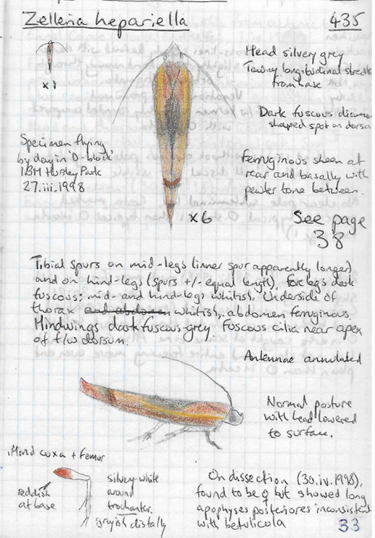 Zelleria hepariella 435
x1
Head silvery grey
Tawny longitudinal streak
from base
Dark fuscous diamond
shaped spot on dorsum
Specimen flying
by day in 'D-block'
IBM Hursley Park
27.iii.1998
ferruginous sheen at
rear and basally with
pewter tone between.
x6
See page
38
Tibial spurs on mid-legs (inner spur apparently longer)
and on hind-legs (spurs +/- equal length), fore legs dark
fuscous; mid- and hind-legs whitish. Underside of
thorax and abdomen whitish, abdomen ferruginous.
Hindwings dark fuscous-grey, fuscous cilia near apex
of f/w dorsum.
Antennae annulated
Normal posture
with head lowered
to surface.
Hind coxa + femur
reddish
at base
silvery white
around
trochanter.
grayish distally
On dissection (30.iv.1998),
found to be ♀ but showed long
apophyses posteriores inconsistent
with betulicola
33